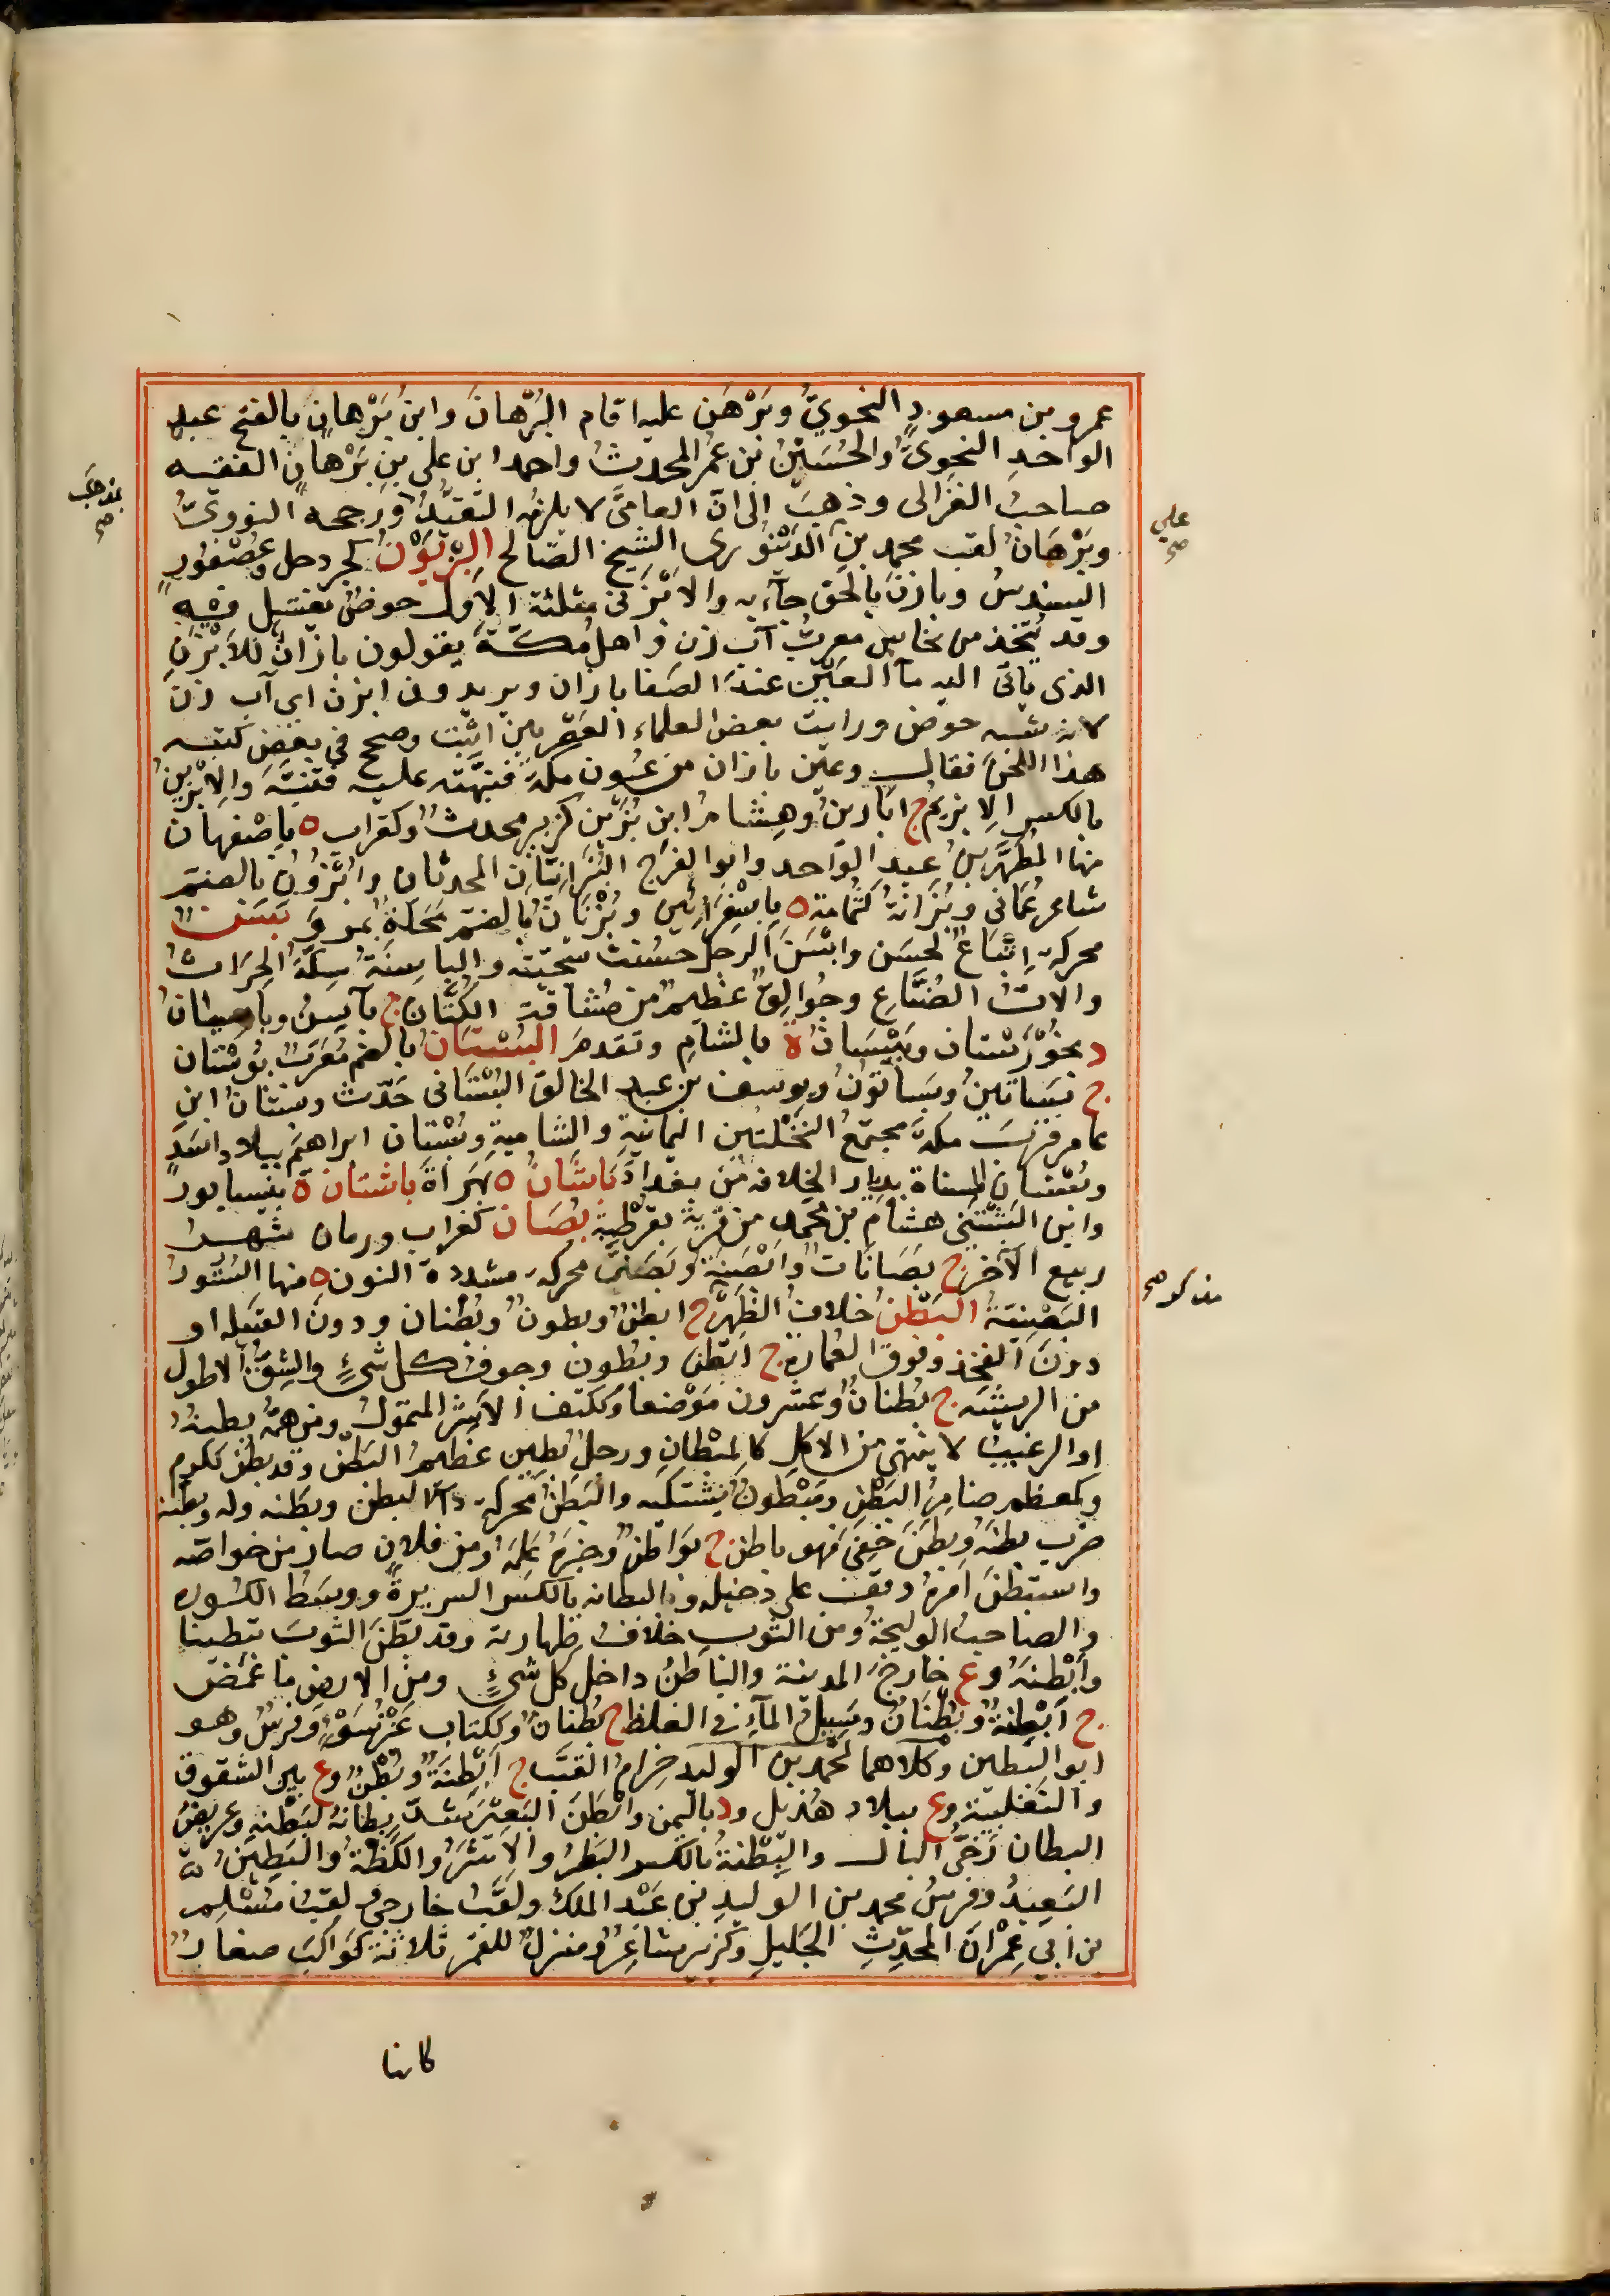 عمرو بن مسعودٍ النحويُّ وبَرْهَن عليه اقام البُرْهانَ وابن بَرْهانٍ بالفتح عبد
الواحدِ النحويُّ والحُسَيْنُ بن عُمر المحدثُ واحمد ابن علي بن بَرْهانٍ الفقيه
صاحبُ الغزالى وذهبَ الى ان العامىَّ لا يلزمه التقيُّدُ ورجحه النوويُّ
وبَرْهانُ لقب محمد بن الدَّيْنَوُرى الشيخ الصَّالح البِزْيَوْنُ كجردحل وعُصْفورٍ
السندسُ وبازنَ بالحق جآء به والابزن مثلثة الاول حوضٌ يغتسل فيه
وقد يُتَّخذ من نحاس معربُ آب زن واهل مكّة يقولون بازانُ للابْزنِ
الذى ياتى اليه مآ العَيْن عندَ الصفا بازان ويريدون ابزن اى آب زن
لانه شبه حوض ورايت بعض العلماء العَصْريين اثبت وصحح في بعض كتبه
هذا اللحنَ فقال وعين بازان من عيون مكة فنبَّهته عليه فتنبَّهَ والابزين
بالكسر الابزيم ج ابازينُ وهشام ابن بُزَيْن كزبير محدثٌ وكغراب ه باصْفهان
منها المُطهَّر بنُ عبد الواحد وابو الفرج البُزانيَّانِ المحدثان وابْزُونُ بالضم
شاعر عُمانى وبُزانةُ كثُمامة ه باسْفِرائين وبُزْنانُ بالضم محلة بمرو بَسَنٌ
محركةً اتباعٌ لحسَن وابْسَنَ الرجل حسُنت سجيّته والباسِنةُ سِكّة الحراث
والات الصُنّاعِ وجُوالِقٌ عظيم من مُشاقة الكَتّان ج بآسِنُ وباسيانُ
د بخُوزِسْتان وبَيْسَانُ ة بالشامِ وتقدم البُسْتان بالضم مُعرَّبُ بُوستان
ج بساتينُ وبساتونُ ويوسف بن عبد الخالق البُسْتانى حَدّث وبستان ابن
عامر قربَ مكة مجتمعُ النخلتين اليمانية والشامية وبستان ابراهيم ببلاد اسدٍ
وبستان المسناة بدار الخلافه من بغداد باشانُ ه بهراة باشتان ة بنيسابور
وابن البَشْتَنى هشام بن محمد من قرية بقرْطبة بُصَان كغراب ورمان شهر
ربيع الآخر ج بُصَانات وابصنة وبَصَنَّى محركة مشددة النون ه منها الستور
البَصَنيّةُ البَطْنُ خلاف الظهر ج ابطنٌ وبطونٌ وبُطْنان ودون القبيله او
دونَ الفخذ وفوق العمارة ج ابطن وبطون وجوف كل شيءٍ والشِقُّ الاطول
من الريشه ج بُطنانٌ وعشرون موْضعا وككتف الاشر المتمول ومن همُّه بطنهُ
او الرغيب لا ينتهى من الاكل كالمبْطانِ ورجل بطين عظيم البَطْن وقد بطُنَ ككرم
وكمعظم ضامِرُ البَطْنِ ومبْطون يشتكيه والبَطَن محركة دآء البطن وبَطَنه وله وبطّنه
ضرب بطنَه وبطَن خفي فهو باطن ج بواطن وخبَره علمَه ومن فلانٍ صار من خواصّه
واستبْطَن امرَه وقف على دخيله والبطانه بالكسر السريرةُ ووسَط الكُسوره
والصاحب الوليجةُ ومن الثوب خلاف ظهارته وقد بطّنَ الثوبَ تبْطينا
وابْطنهُ وع خارجَ المدينة والباطِنُ داخل كل شيءٍ ومن الارض ما غمض
ج ابْطِنةٌ وبُطْنانٌ ومَسِيلُ المآءِ في الغلظ ج بُطنان وككتاب عَنْزُسَوْءٍ وفرسٌ وهو
ابو البَطين وكلاهما لمحمد بن الوليد حزام القتَب ج ابْطِنةٌ وبُطنٌ وع بين الشقوق
والثعلبية وع ببلاد هذيل ود باليمن وابْطَنَ البَعيرَ شدّ بِطانهُ كبَطَنهِ وعريضُ
البطان رَخىُّ البال والبِطْنةُ بالكسر البَطرُ والاشرُ والكِظّةُ والبَطِينُ
البعيدُ وفرسُ محمد بن الوليد بن عَبْد الملك ولقبُ خارجىٍّ ولقب مُسْلِم
بن ابي عِمْران المحدِّثِ الجَليلِ وكزبير شاعِرٌ ومنزلٌ للقمر ثلاثة كواكبَ صغار
علي
صح
بمذهب
صح
مذكور صح
كانها